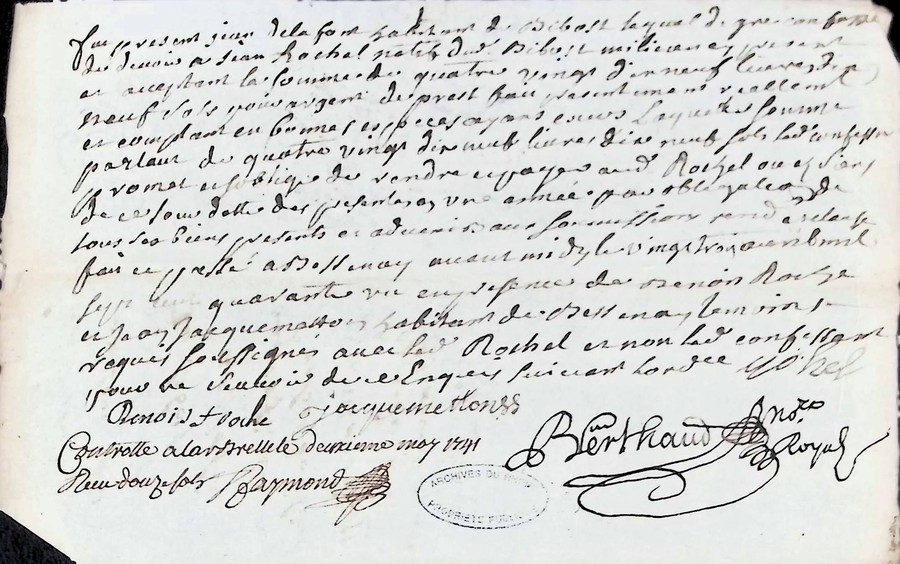 fut present jean delafont habitant de Bibost lequel de gre confesse
de devoir a jean Rochel natif dud. Bibost milicien cy present
et acceptant la somme de quatre vingt dix neuf livres dix
neuf sols pour argent de prest fait presentement reellement
et comptant en bonnes especes ayans cours laquelle somme
partant de quatre vingt dix neuf livres dix neuf sols led. confessant
promet et s'oblige de rendre et payer aud. Rochel ou es siens
de ce jourd'
tous ses biens presents et advenir aux soumission rend &
fait et passé a Bessenay avant midy le vingt trois avril mil
sept cent quarante un en presence de Benoit Roche
et jean jacquemetton habitant de Bessenay temoins
requis soussignés avec led. Rochel et non led. confessant
pour ne sçavoir de ce Enquis suivant lord.ce
Rochel
Benoist Roche jacquemettons
Controllé a larbrelle le deuxieme may 1741
Receu douze sols Raymond
Berthaud No.re Royal
ARCHIVES DU RHÔNE
PROPRIÉTÉ PUBLIQUE